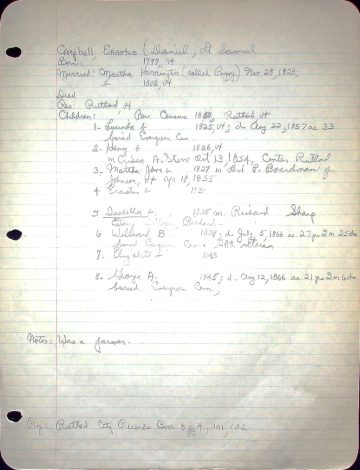 Campbell, Erastus (Daniel, Samuel
Born: 1797, Vt
Married: Martha Harrington (called Peggy) Nov. 28, 1823;
b 1802, Vt
Died
Res: Rutland, Vt
Children: Per Census 1850, Rutland, Vt
1- Lucinda b 1825, Vt; d. Aug 22, 1857 ae 33
buried Evergreen Cem.
2- Henry b 1826, Vt
m Oct 13, 1854, Center Rutland
3. Martha Jane b 1827 m P. Boardman of
Johnson, Vt 18, 1855
4 Erastus b
5 Isabella b. 1835 m. Richard Sharp
6 Willard B 1839, d. July 5, 1866 ae 27 yrs 2m 25ds
buried Evergreen Cem. GAR veteran
7. Elizabeth b 1843
8- George A. 1845; d. Aug 12, 1866 ae 21 yrs 2m 6ds
buried Evergreen Cem,
Notes: Was a farmer.
Rutland City Records Book 8 pg 4, 101, 102